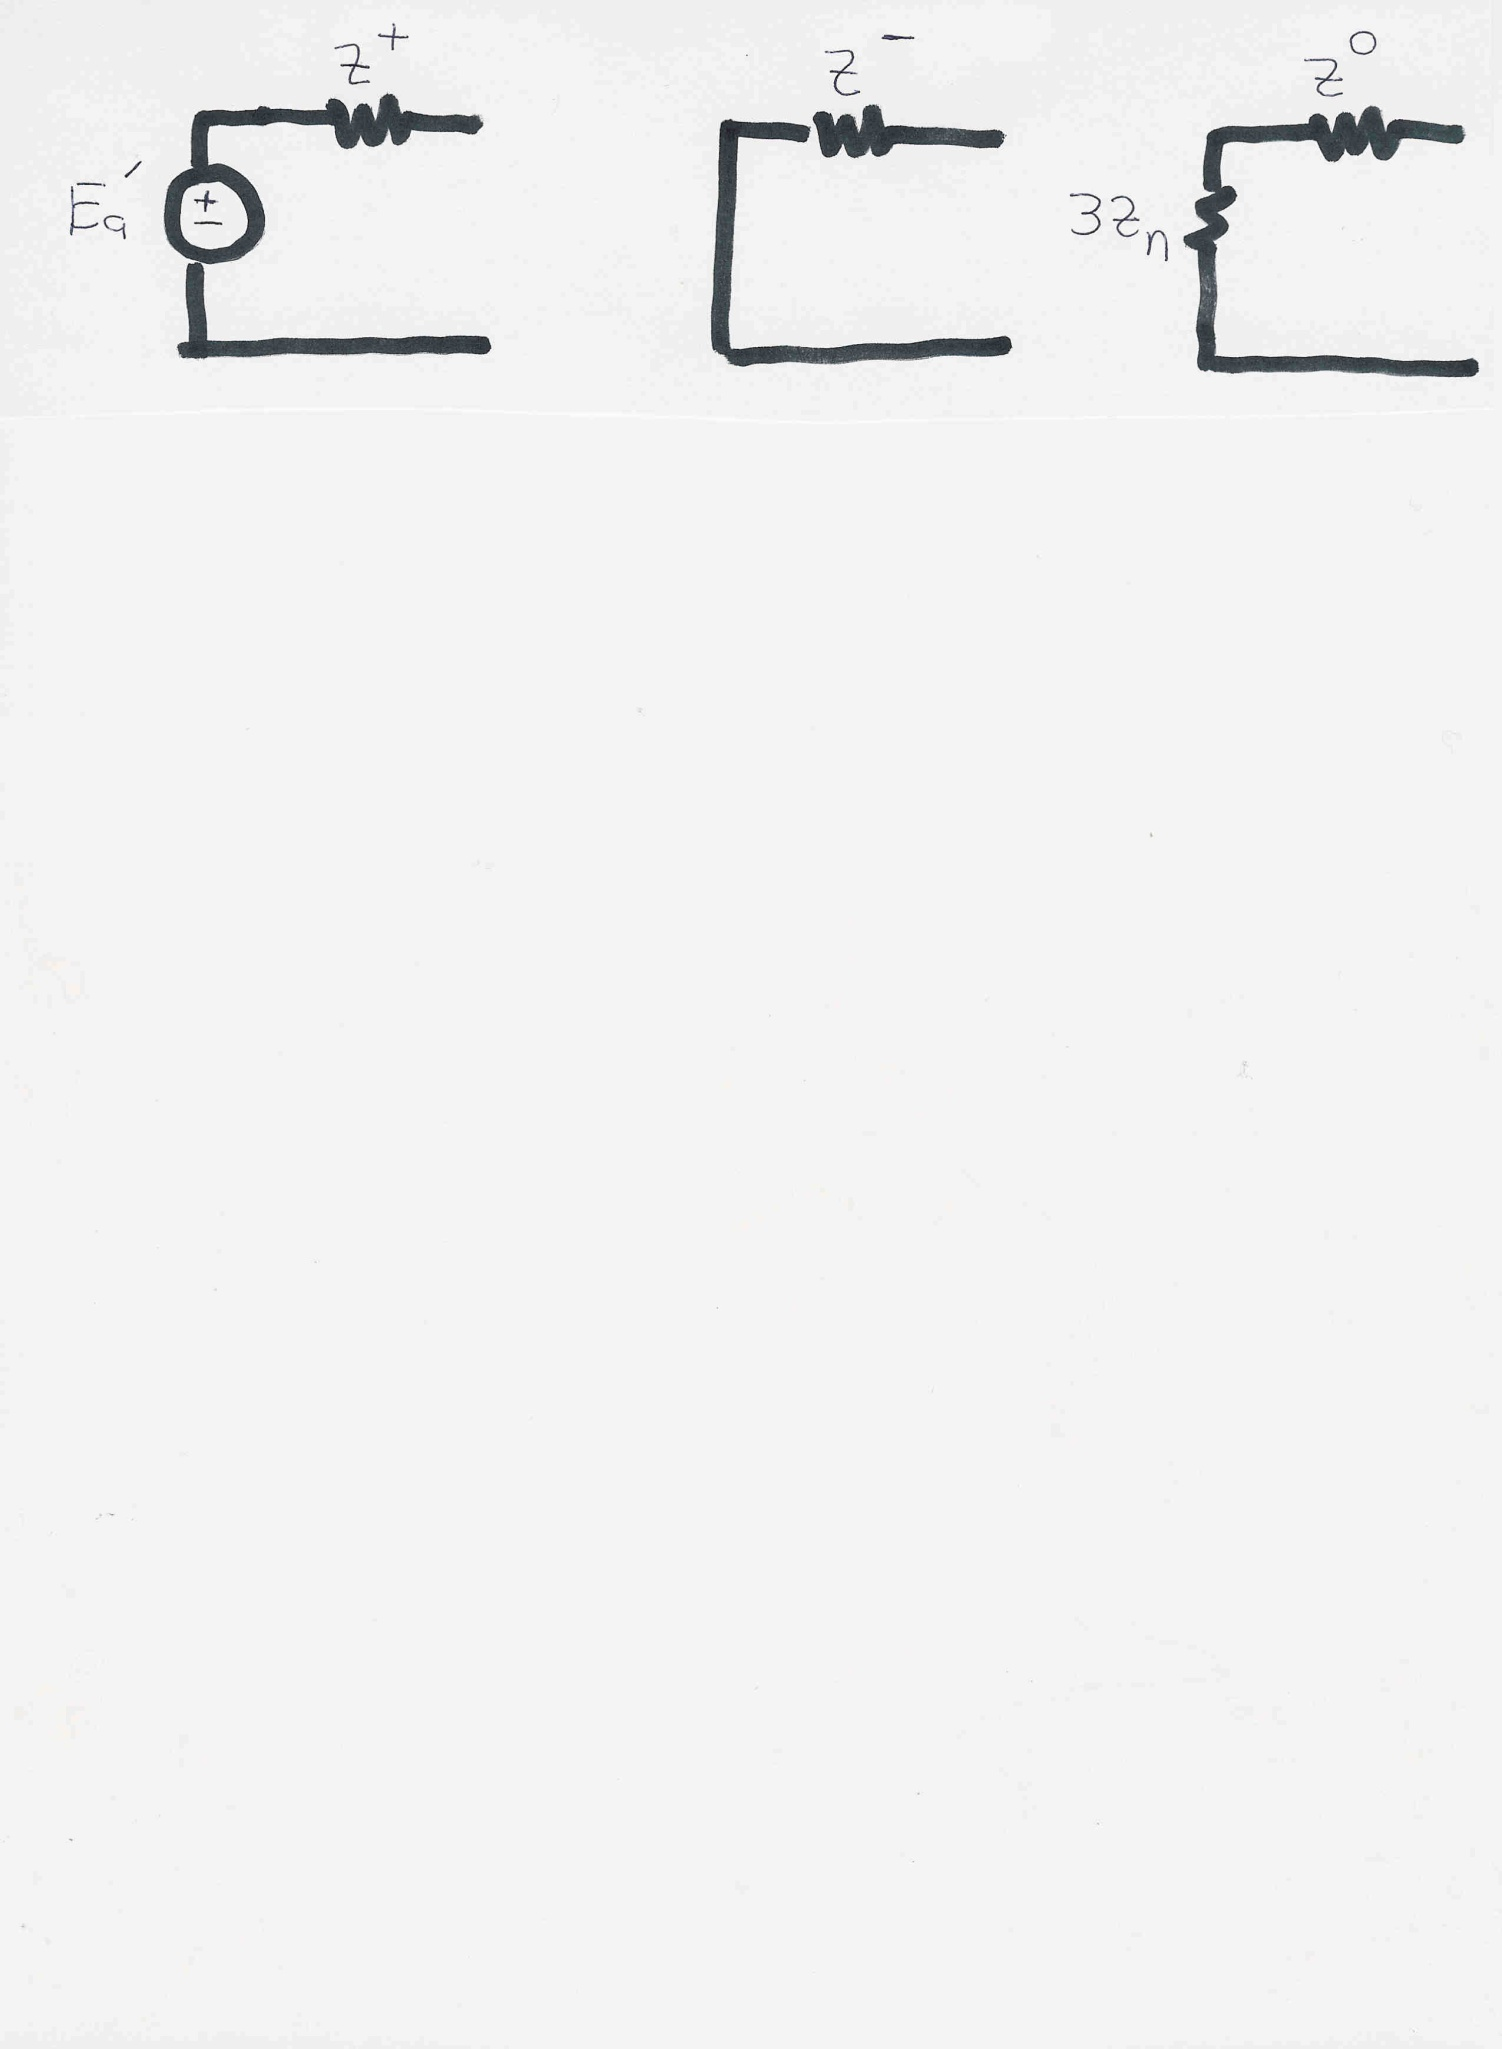 Z⁺
Ea′
±
Z⁻
Z⁰
3Zn